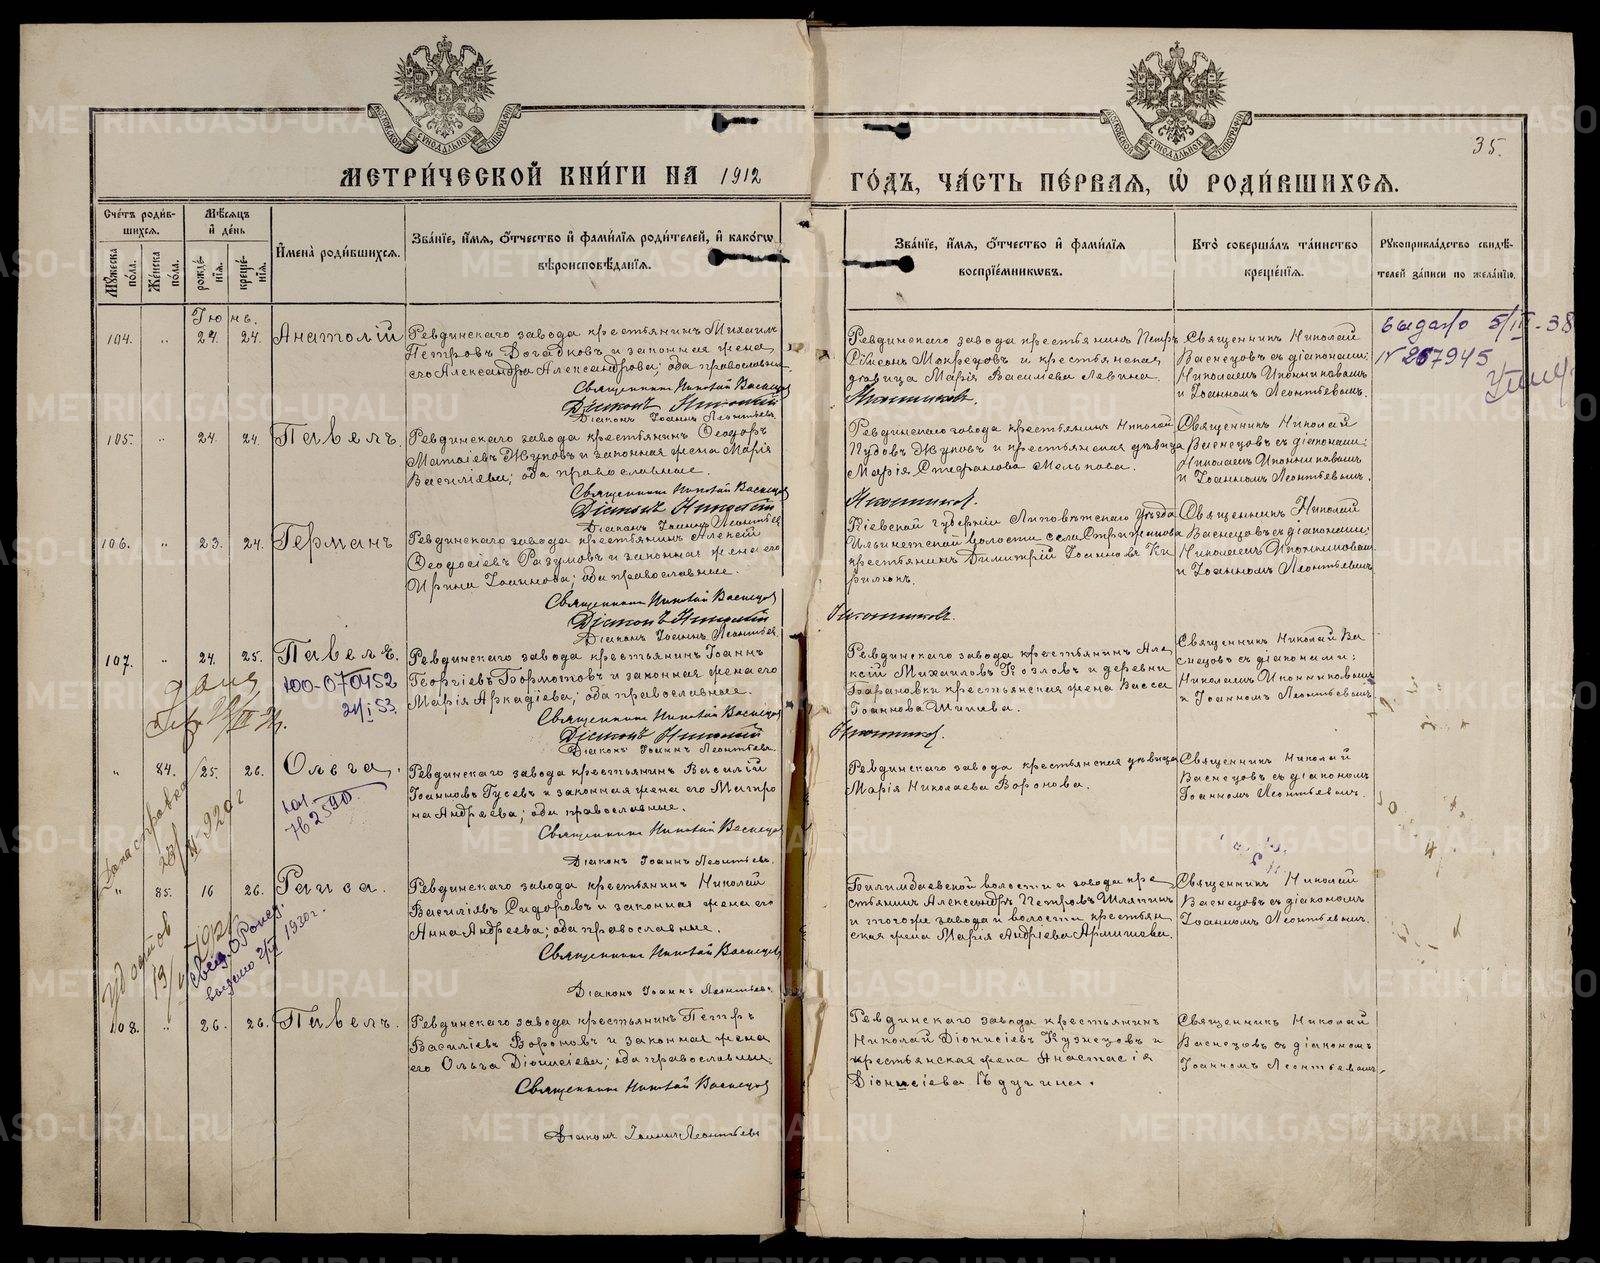 МЕТРИ́ЧЕСКОЙ КНИ́ГИ НА 1912 ГО́ДЪ, ЧА́СТЬ ПЕ́РВАЯ, Ѡ҆ РОДИ́ВШИХСЯ.
35.
Сче́тъ роди́в-
шихся.
Мꙋ́жеска по́ла.
Же́нска по́ла.
Мѣ́сяцъ
и҆ де́нь
рожде́-
нїя.
креще́-
нїя.
И҆мена̀ роди́вшихся.
Зва́нїе, и҆́мя, ѻ҆́тчество и҆ фами́лїя роди́телей, и҆ како́гѡ
вѣроисповѣ́данїя.
Зва́нїе, и҆́мя, ѻ҆́тчество и҆ фами́лїя
воспрїе́мникѡвъ.
Кто̀ соверша́лъ та́инство
креще́нїя.
Рꙋкоприкла́дство свидѣ́-
телей за́писи по жела́нїю.
Іюнь.
104. " 24. 24. Анатолій
Ревдинскаго завода крестьянинъ Михаилъ
Петровъ Догадковъ и законная жена
его Александра Александрова; оба православные
Священникъ Николай Васнецов
Діаконъ
Діаконъ Іоаннъ Леонтьевъ
Ревдинскаго завода крестьянинъ Петръ
Мокрецовъ и крестьянская
дѣвица Марія Васильева Левина.
Священникъ Николай
Васнецовъ съ діаконами:
Николаемъ Иконниковымъ
и Іоанномъ Леонтьевымъ.
выдано 5/III-38
N 267945
105. " 24. 24. Павелъ.
Ревдинскаго завода крестьянинъ Ѳеодоръ
Матѳіевъ Жуковъ и законная жена Марія
Васильева; оба православные.
Священникъ Николай Васнецов
Діаконъ
Діаконъ Іоаннъ Леонтьев
Ревдинскаго завода крестьянинъ Николай
Жуковъ и крестьянская дѣвица
Марія Стефанова Мелькова.
Иконников.
Священникъ Николай
Васнецовъ съ діаконами:
Николаемъ Иконниковымъ
и Іоанномъ Леонтьевымъ.
106. " 23. 24. Германъ
Ревдинскаго завода крестьянинъ Алексій
Ѳеодосіевъ Разумовъ и законная жена его
Ирина Іоаннова; оба православные.
Священникъ Николай Васнецов
Діаконъ
Діаконъ Іоаннъ Леонтьев
Кіевской губерніи Липовецкаго уѣзда
волости села
крестьянинъ Димитрій Іоанновъ Ки
рилюкъ.
Иконников.
Священникъ Николай
Васнецовъ съ діаконами:
Николаемъ Иконниковым
и Іоанномъ Леонтьевымъ
107. " 24. 25. Павелъ.
100-070452
21/I 53.
Ревдинскаго завода крестьянинъ Іоаннъ
Георгіевъ Бормотовъ и законная жена его
Марія Аркадіева; оба православные.
Священникъ Николай Васнецов
Діаконъ
Діаконъ Іоаннъ Леонтьевъ
Ревдинскаго завода крестьянинъ Але
ксій Михаиловъ Козловъ и деревни
Барановки крестьянская жена Васса
Іоаннова
Иконников.
Священникъ Николай Ва
снецовъ съ діаконами:
Николаемъ Иконниковымъ
и Іоанномъ Леонтьевымъ
" 84. 25. 26. Ольга.
Ревдинскаго завода крестьянинъ Василій
Іоанновъ Гусевъ и законная жена его Матро
на Андреева; оба православные.
Священникъ Николай Васнецов
Діаконъ Іоаннъ Леонтьевъ.
Ревдинскаго завода крестьянская дѣвица
Марія Николаева Воронова.
Священникъ Николай
Васнецовъ съ діакономъ
Іоанномъ Леонтьевымъ.
" 85. 16 26. Раиса.
Ревдинскаго завода крестьянинъ Николай
Васильевъ Сидоровъ и законная жена его
Анна Андреева; оба православные.
Священникъ Николай Васнецов
Діаконъ Іоаннъ Леонтьевъ
Билимбаевской волости и завода кре
стьянинъ Александръ Петровъ Шляпинъ
и тогоже завода и волости крестьян
ская жена Марія Андріева
Священникъ Николай
Васнецовъ съ діакономъ
Іоанномъ Леонтьевымъ.
выдано 2/VI 1930г.
108. " 26. 26. Павелъ.
Ревдинскаго завода крестьянинъ Петръ
Василіевъ Вороновъ и законная жена
его Ольга Діонисіева; оба православные.
Священникъ Николай Васнецов
Діаконъ Іоаннъ Леонтьевъ
Ревдинскаго завода крестьянинъ
Николай Діонисіевъ Кузнецовъ и
крестьянская жена Анастасія
Діонисіева
Священникъ Николай
Васнецовъ съ діакономъ
Іоанномъ Леонтьевымъ.
METRIKI.GASO-URAL.RU